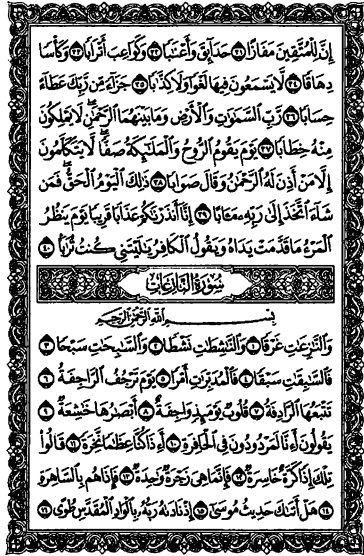 إِنَّ لِلْمُتَّقِينَ مَفَازًا ٣١ حَدَآئِقَ وَأَعْنَٰبًا ٣٢ وَكَوَاعِبَ أَتْرَابًا ٣٣ وَكَأْسًا
دِهَاقًا ٣٤ لَّا يَسْمَعُونَ فِيهَا لَغْوًا وَلَا كِذَّٰبًا ٣٥ جَزَآءً مِّن رَّبِّكَ عَطَآءً
حِسَابًا ٣٦ رَّبِّ ٱلسَّمَٰوَٰتِ وَٱلْأَرْضِ وَمَا بَيْنَهُمَا ٱلرَّحْمَٰنِ ۖ لَا يَمْلِكُونَ
مِنْهُ خِطَابًا ٣٧ يَوْمَ يَقُومُ ٱلرُّوحُ وَٱلْمَلَٰٓئِكَةُ صَفًّا ۖ لَّا يَتَكَلَّمُونَ
إِلَّا مَنْ أَذِنَ لَهُ ٱلرَّحْمَٰنُ وَقَالَ صَوَابًا ٣٨ ذَٰلِكَ ٱلْيَوْمُ ٱلْحَقُّ ۖ فَمَن
شَآءَ ٱتَّخَذَ إِلَىٰ رَبِّهِۦ مَـَٔابًا ٣٩ إِنَّآ أَنذَرْنَٰكُمْ عَذَابًا قَرِيبًا يَوْمَ يَنظُرُ
ٱلْمَرْءُ مَا قَدَّمَتْ يَدَاهُ وَيَقُولُ ٱلْكَافِرُ يَٰلَيْتَنِى كُنتُ تُرَٰبًۢا ٤٠
سُورَةُ النَّازِعَاتِ
بِسْمِ ٱللَّهِ ٱلرَّحْمَٰنِ ٱلرَّحِيمِ
وَٱلنَّٰزِعَٰتِ غَرْقًا ١ وَٱلنَّٰشِطَٰتِ نَشْطًا ٢ وَٱلسَّٰبِحَٰتِ سَبْحًا ٣
فَٱلسَّٰبِقَٰتِ سَبْقًا ٤ فَٱلْمُدَبِّرَٰتِ أَمْرًا ٥ يَوْمَ تَرْجُفُ ٱلرَّاجِفَةُ ٦
تَتْبَعُهَا ٱلرَّادِفَةُ ٧ قُلُوبٌ يَوْمَئِذٍ وَاجِفَةٌ ٨ أَبْصَٰرُهَا خَٰشِعَةٌ ٩
يَقُولُونَ أَءِنَّا لَمَرْدُودُونَ فِى ٱلْحَافِرَةِ ١٠ أَءِذَا كُنَّا عِظَٰمًا نَّخِرَةً ١١ قَالُوا۟
تِلْكَ إِذًا كَرَّةٌ خَاسِرَةٌ ١٢ فَإِنَّمَا هِىَ زَجْرَةٌ وَٰحِدَةٌ ١٣ فَإِذَا هُم بِٱلسَّاهِرَةِ
١٤ هَلْ أَتَىٰكَ حَدِيثُ مُوسَىٰٓ ١٥ إِذْ نَادَىٰهُ رَبُّهُۥ بِٱلْوَادِ ٱلْمُقَدَّسِ طُوًى ١٦